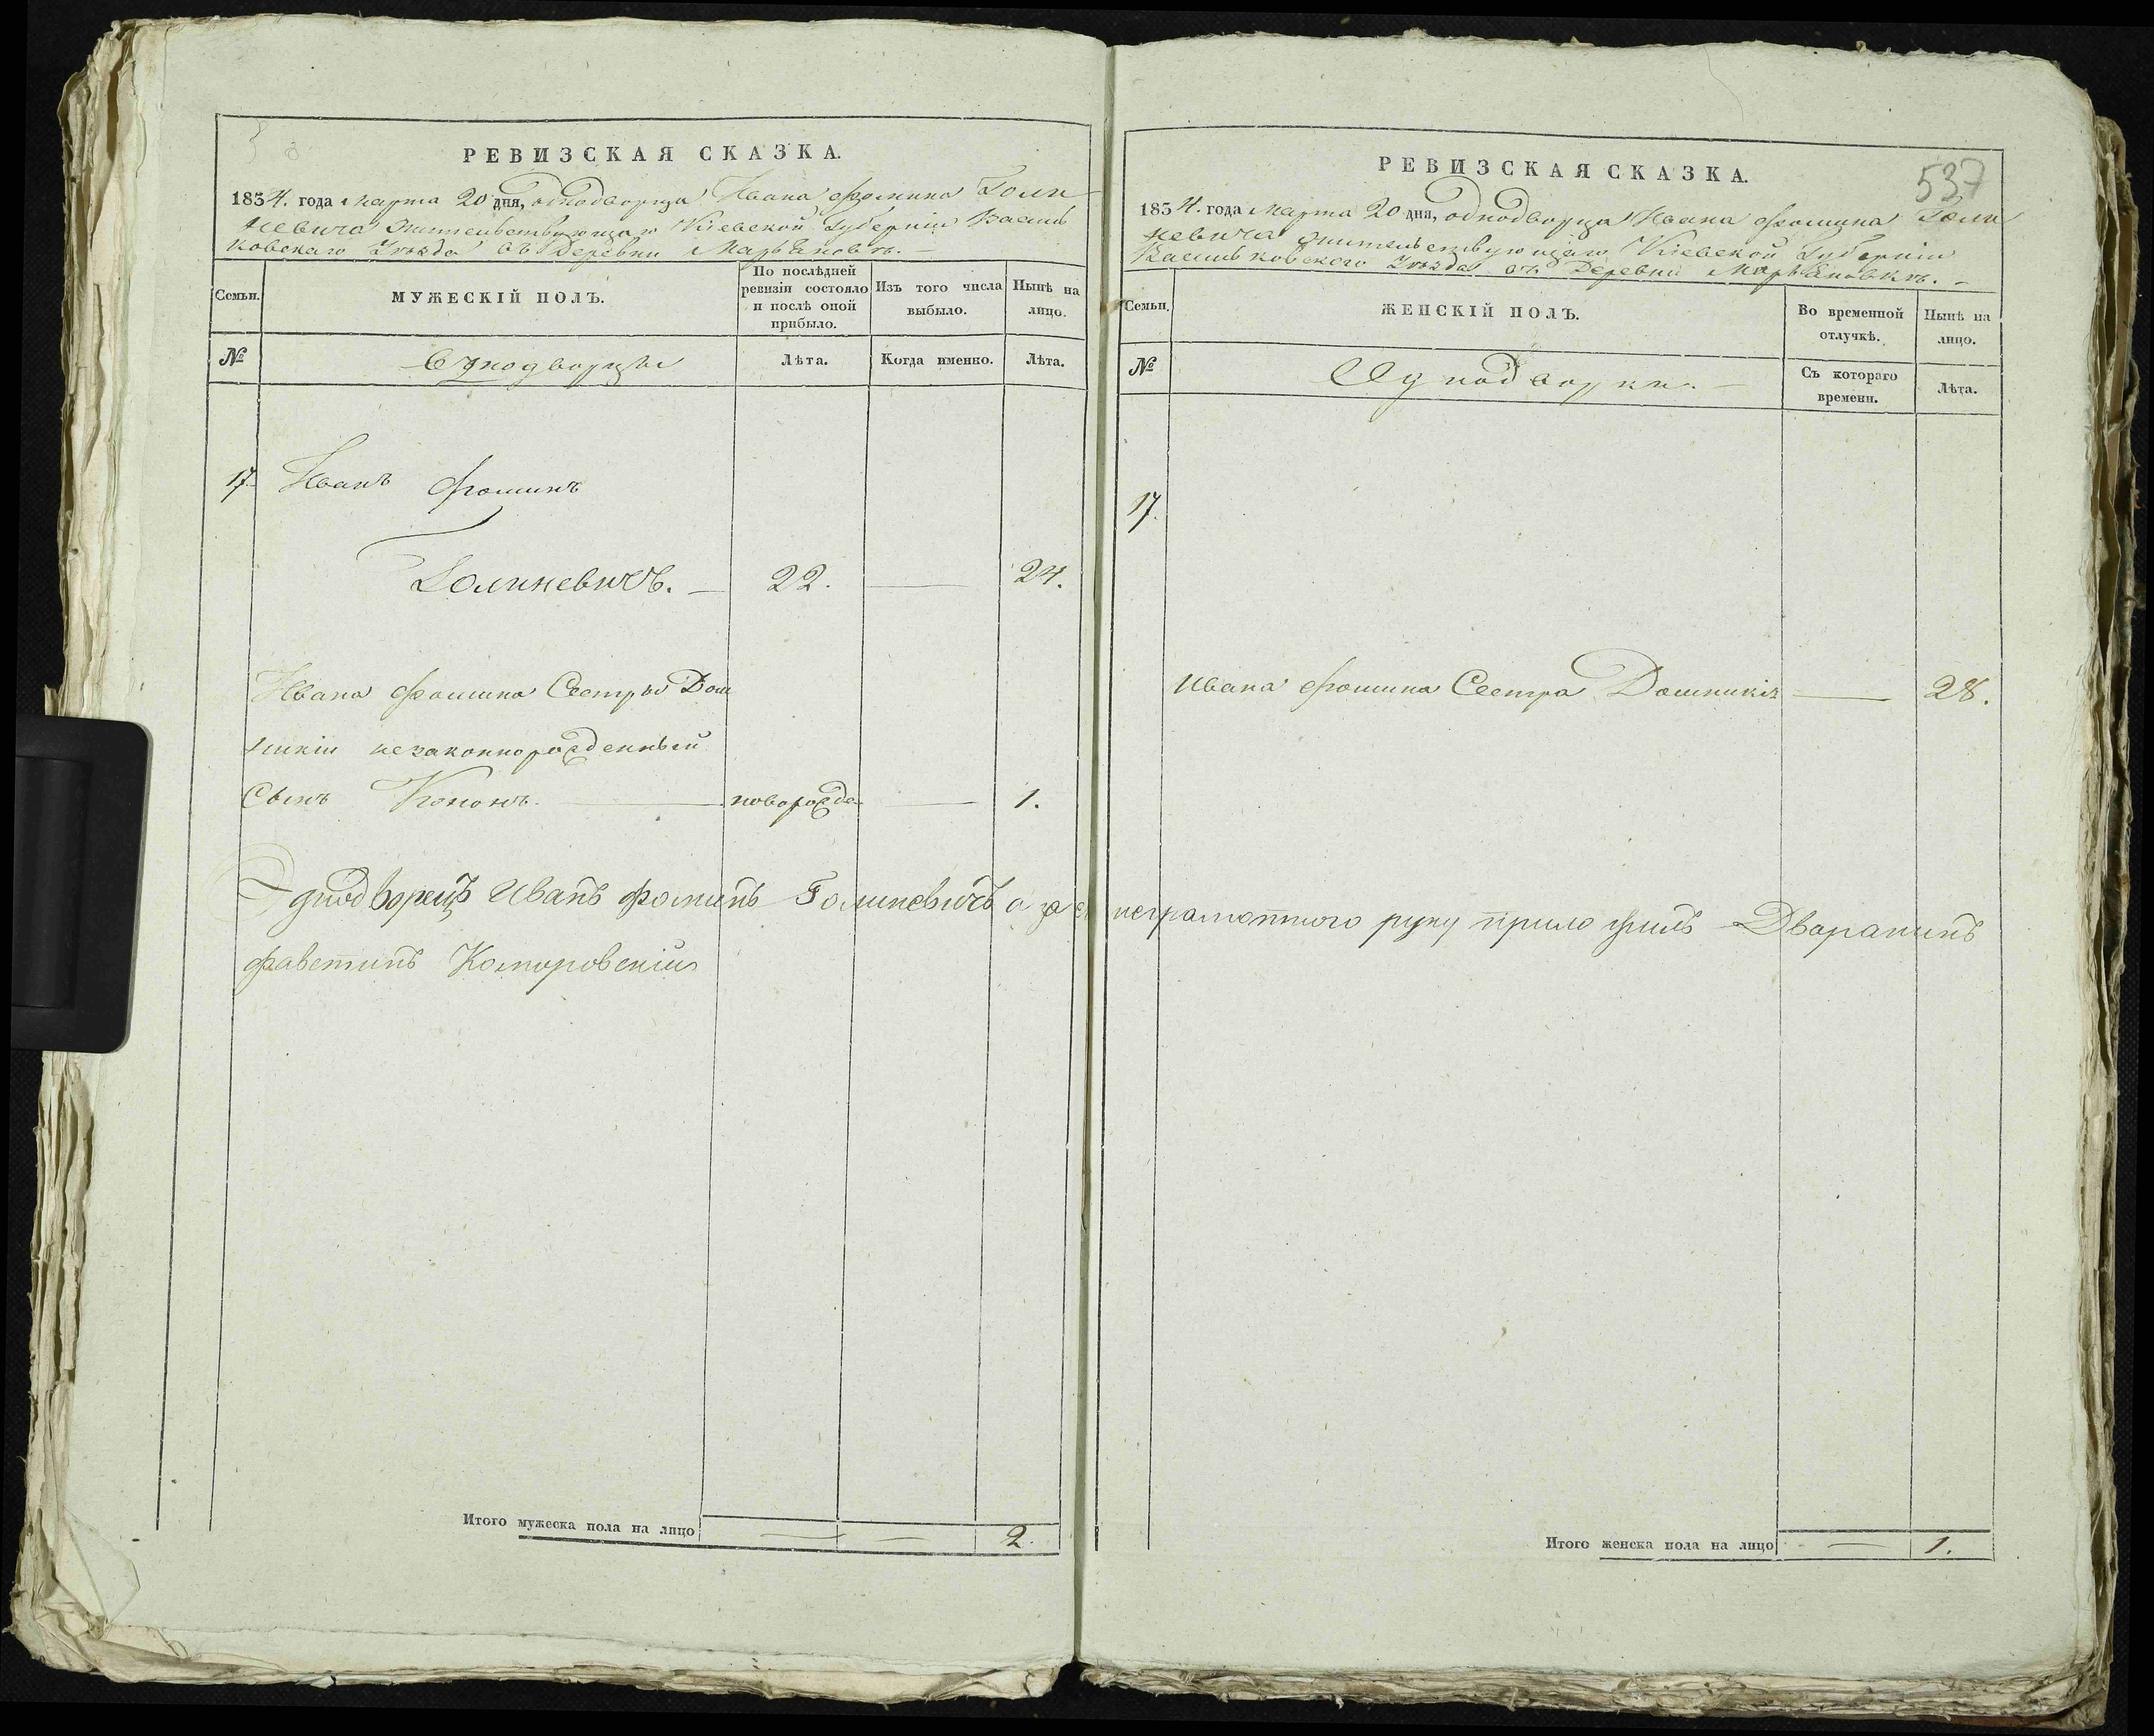 РЕВИЗСКАЯ СКАЗКА.
1834. года Марта 20 дня, однодворца Ивана Фомина Голи
невича жительствующаго Кіевской Губерніи Василь
ковскаго Уѣзда въ Деревни Марьяновкѣ. —
Семьи.
МУЖЕСКІЙ ПОЛЪ.
По послѣдней ревизіи состояло и послѣ оной прибыло.
Изъ того числа выбыло.
Нынѣ на лицо.
№
Однодворцы
Лѣта.
Когда именно.
Лѣта.
17. Иванъ Фоминъ
Голиневичъ. — 22. — 24.
Ивана Фомина Сестры Дом
никіи незаконнорожденный
Сынъ Кононъ. — новорожде — 1.
Однодворецъ Иванъ Фоминъ Голиневичъ а за его неграмотного руку приложилъ Дваранинъ
Фавстинъ Коморовскій
Итого мужеска пола на лицо — — 2.
537
РЕВИЗСКАЯ СКАЗКА.
1834. года Марта 20 дня, однодворца Ивана Фомина Голи
невича жительствующаго Кіевской Губерніи
Васильковского Уѣзда въ Деревни Марьяновкѣ. —
Семьи.
ЖЕНСКІЙ ПОЛЪ.
Во временной отлучкѣ.
Нынѣ на лицо.
№
Однодворки. —
Съ котораго времени.
Лѣта.
17.
Ивана Фомина Сестра Домникія — 28.
Итого женска пола на лицо — 1.